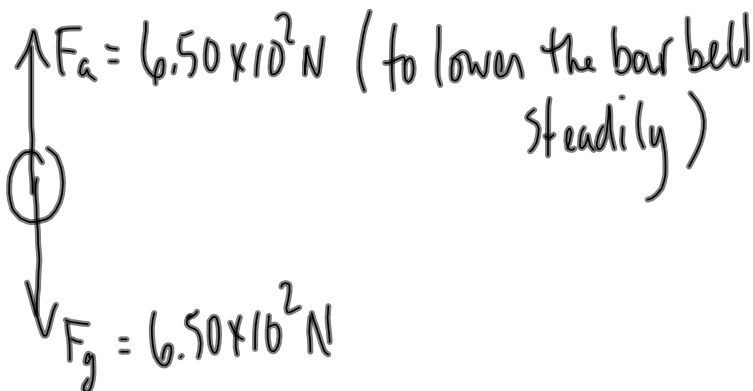 Fₐ = 6.50×10² N (to lower the barbell
steadily)
F_g = 6.50×10² N